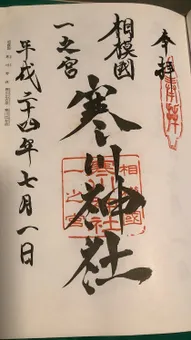 奉拝
相模國
一之宮
寒川神社
平成二十四年七月一日
相模國
寒川神社
一之宮